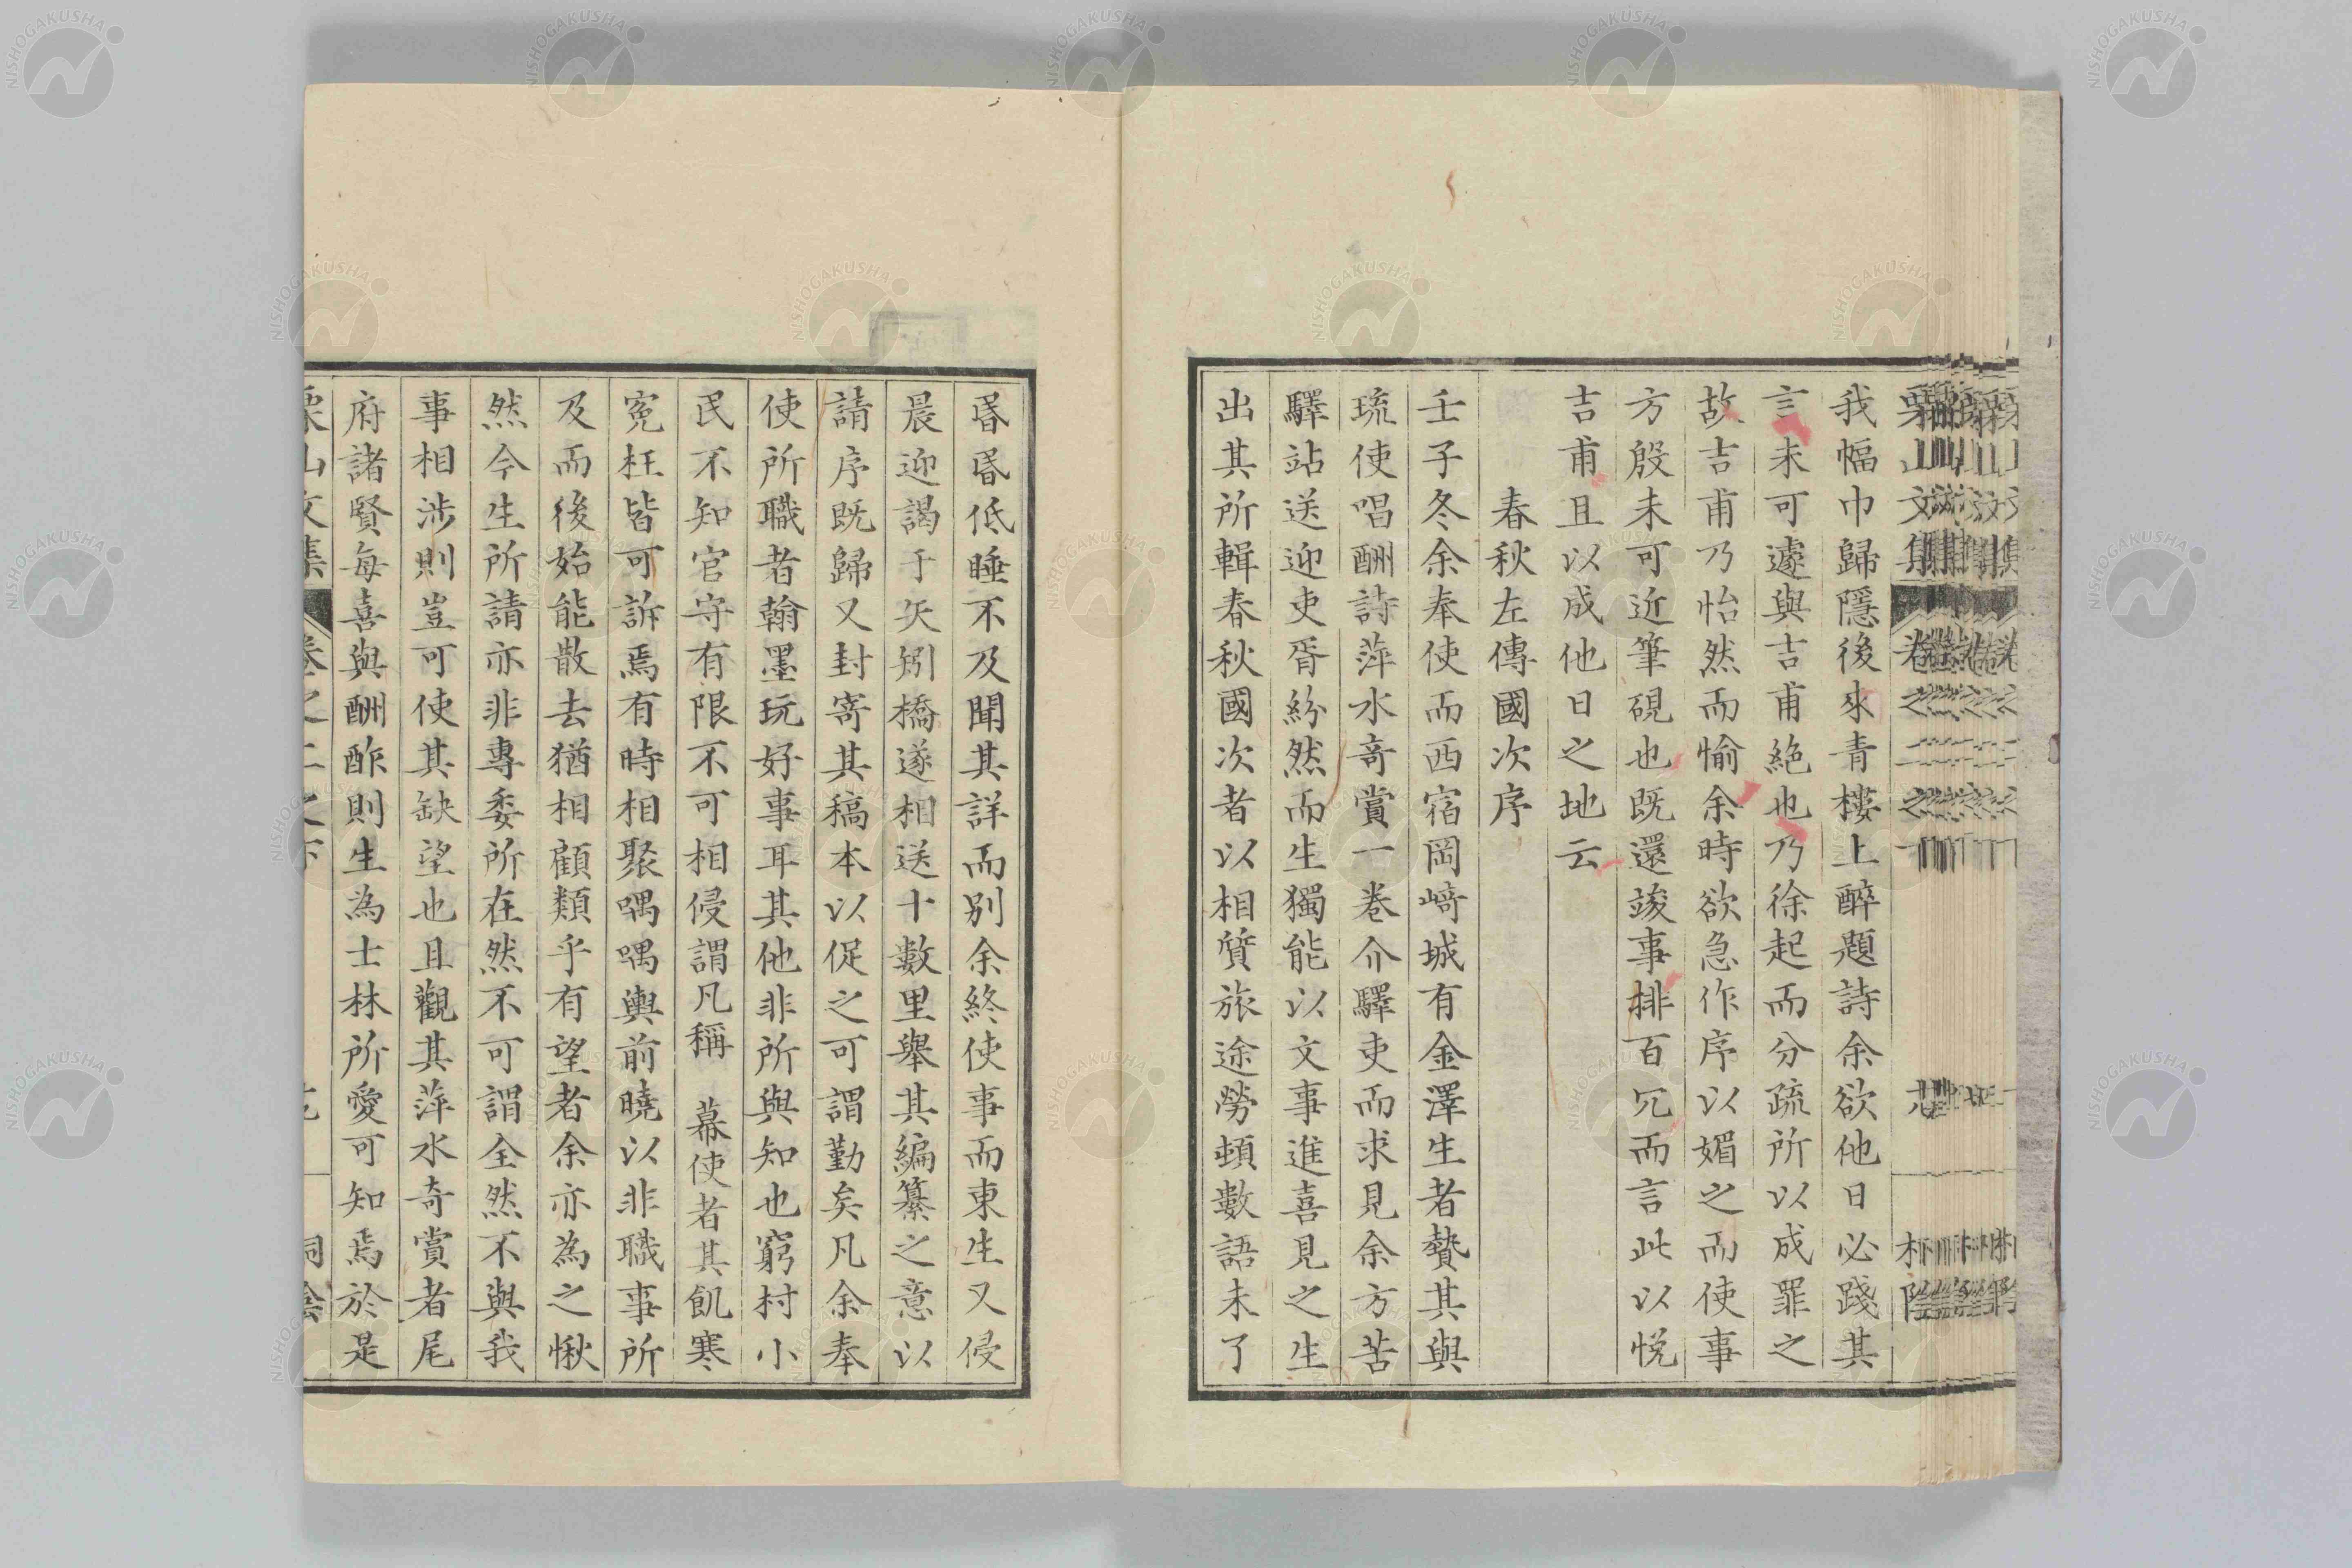 我幅巾歸隱後來青樓上醉題詩余欲他日必踐其
言未可遽與吉甫絶也乃徐起而分疏所以成罪之
故吉甫乃怡然而愉余時欲急作序以媚之而使事
方殷未可近筆硯也既還竣事排百冗而言此以悅
吉甫且以成他日之地云
春秋左傳國次序
壬子冬余奉使而西宿岡﨑城有金澤生者贄其與
琉使唱酬詩萍水竒賞一卷介驛吏而求見余方苦
驛站送迎吏胥紛然而生獨能以文事進喜見之生
出其所輯春秋國次者以相質旅途勞頓數語未了
昬昬低睡不及聞其詳而別余終使事而東生又侵
晨迎謁于矢矧橋遂相送十數里舉其編纂之意以
請序既歸又封寄其稿本以促之可謂勤矣凡余奉
使所職者翰墨玩好事耳其他非所與知也窮村小
民不知官守有限不可相侵謂凡稱 幕使者其飢寒
冤枉皆可訴焉有時相聚喁喁輿前曉以非職事所
及而後始能散去猶相顧類乎有望者余亦為之愀
然今生所請亦非專委所在然不可謂全然不與我
事相涉則豈可使其缺望也且觀其萍水奇賞者尾
府諸賢每喜與酬酢則生為士林所愛可知焉於是
栗山文集 卷之二之下
NISHOGAKUSHA